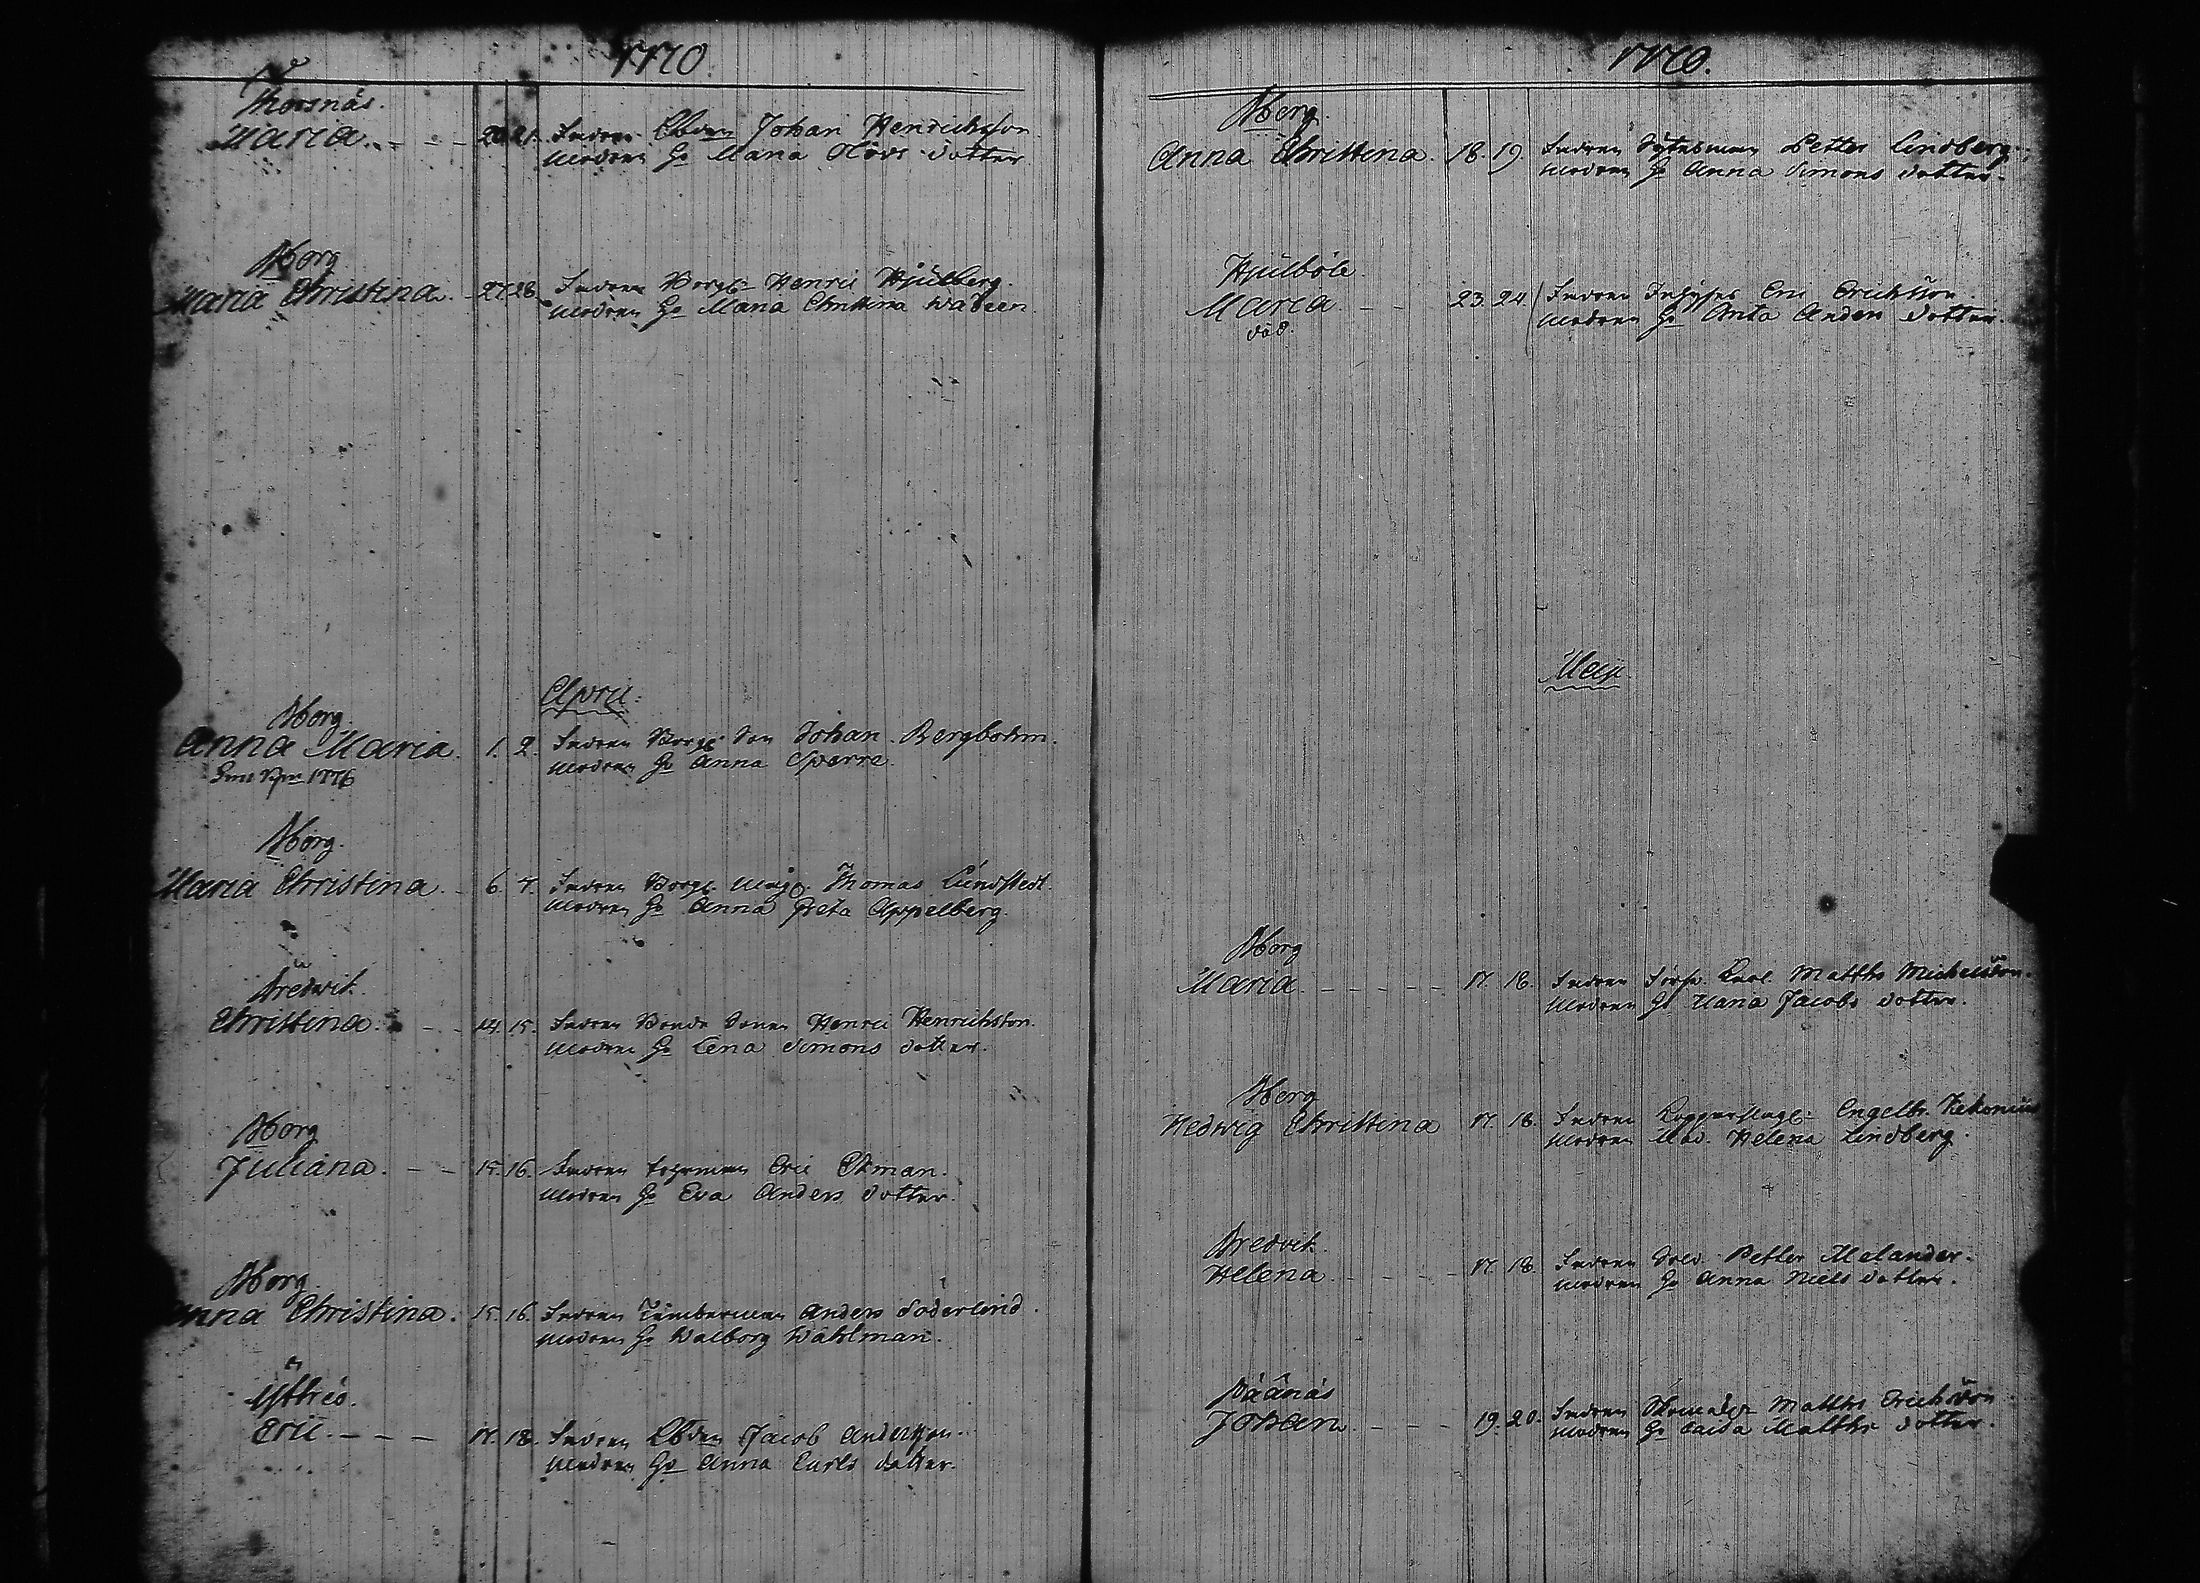 1770
Thorsnäs.
Maria. 20. 21. Fadren Johan Henrichsson
Modren H: Maria Olofs dotter
Nborg
Maria Christina. 27. 28. Fadren Borg: Henric Hjulberg.
Modren H: Maria Christina Wadeen
April:
Nborg.
Anna Maria. 1. 2. Fadren Borg: Son Johan Bergbohm.
1776 Modren H: Anna Sparre.
Nborg.
Maria Christina. 6. 7. Fadren Borg: Thomas Lundstedt.
Modren H: Anna Greta Appelberg.
Bredwik.
Christina. 14. 15. Fadren Bonde Sonen Henric Henrichsson.
Modren H: Lena Simons dotter.
Nborg
Juliana. 15. 16. Fadren Eric Ekman.
Modren H: Eva Anders dotter.
Nborg.
Anna Christina. 15. 16. Fadren Timberman Anders Söderlund.
Modren H: Walborg Wahlman.
Eric. 17. 18. Fadren Jacob Andersson.
Modren H: Anna Carls dotter.
1770.
Nborg.
Anna Christina. 18. 19. Fadren Petter Lindberg.
Modren H: Anna Simons dotter.
Hjulböle.
Maria. 23. 24. Fadren Eric Erichsson
död. Modren H: Anta Anders dotter.
Maji.
Nborg
Maria. 17. 18. Fadren Matths Michelsson.
Modren H: Maria Jacobs dotter.
Nborg
Hedwig Christina 17. 18. Fadren Kopparslag: Engelbr.
Modren Mad. Helena Lindberg.
Bredvik.
Helena. 17. 18. Fadren Sold. Petter Melander.
Modren H: Anna Niels dotter.
Johan. 19. 20. Fadren Matths Erichsson
Modren H: Caisa Matths dotter.